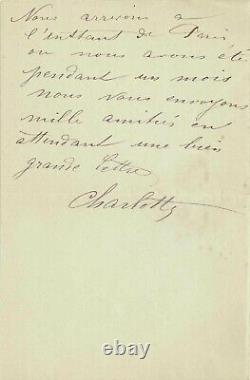 Nous arrivons a
l'instant de Paris
ou nous avons été
pendant un mois
nous vous envoyons
mille amitiés en
attendant une bien
grande lettre
Charlotte
ebay